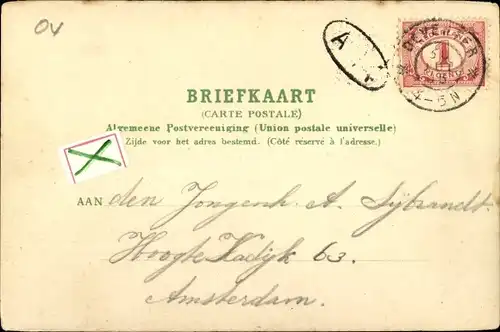 OV
A
DEVENTER
1
4-5N
BRIEFKAART
(CARTE POSTALE)
Algemeene Postvereeniging (Union postale universelle)
Zijde voor het adres bestemd. (Côté réservé à l'adresse.)
AAN den Jongenh. A. Sijbrandt.
Hoogte Kadijk 63.
Amsterdam.